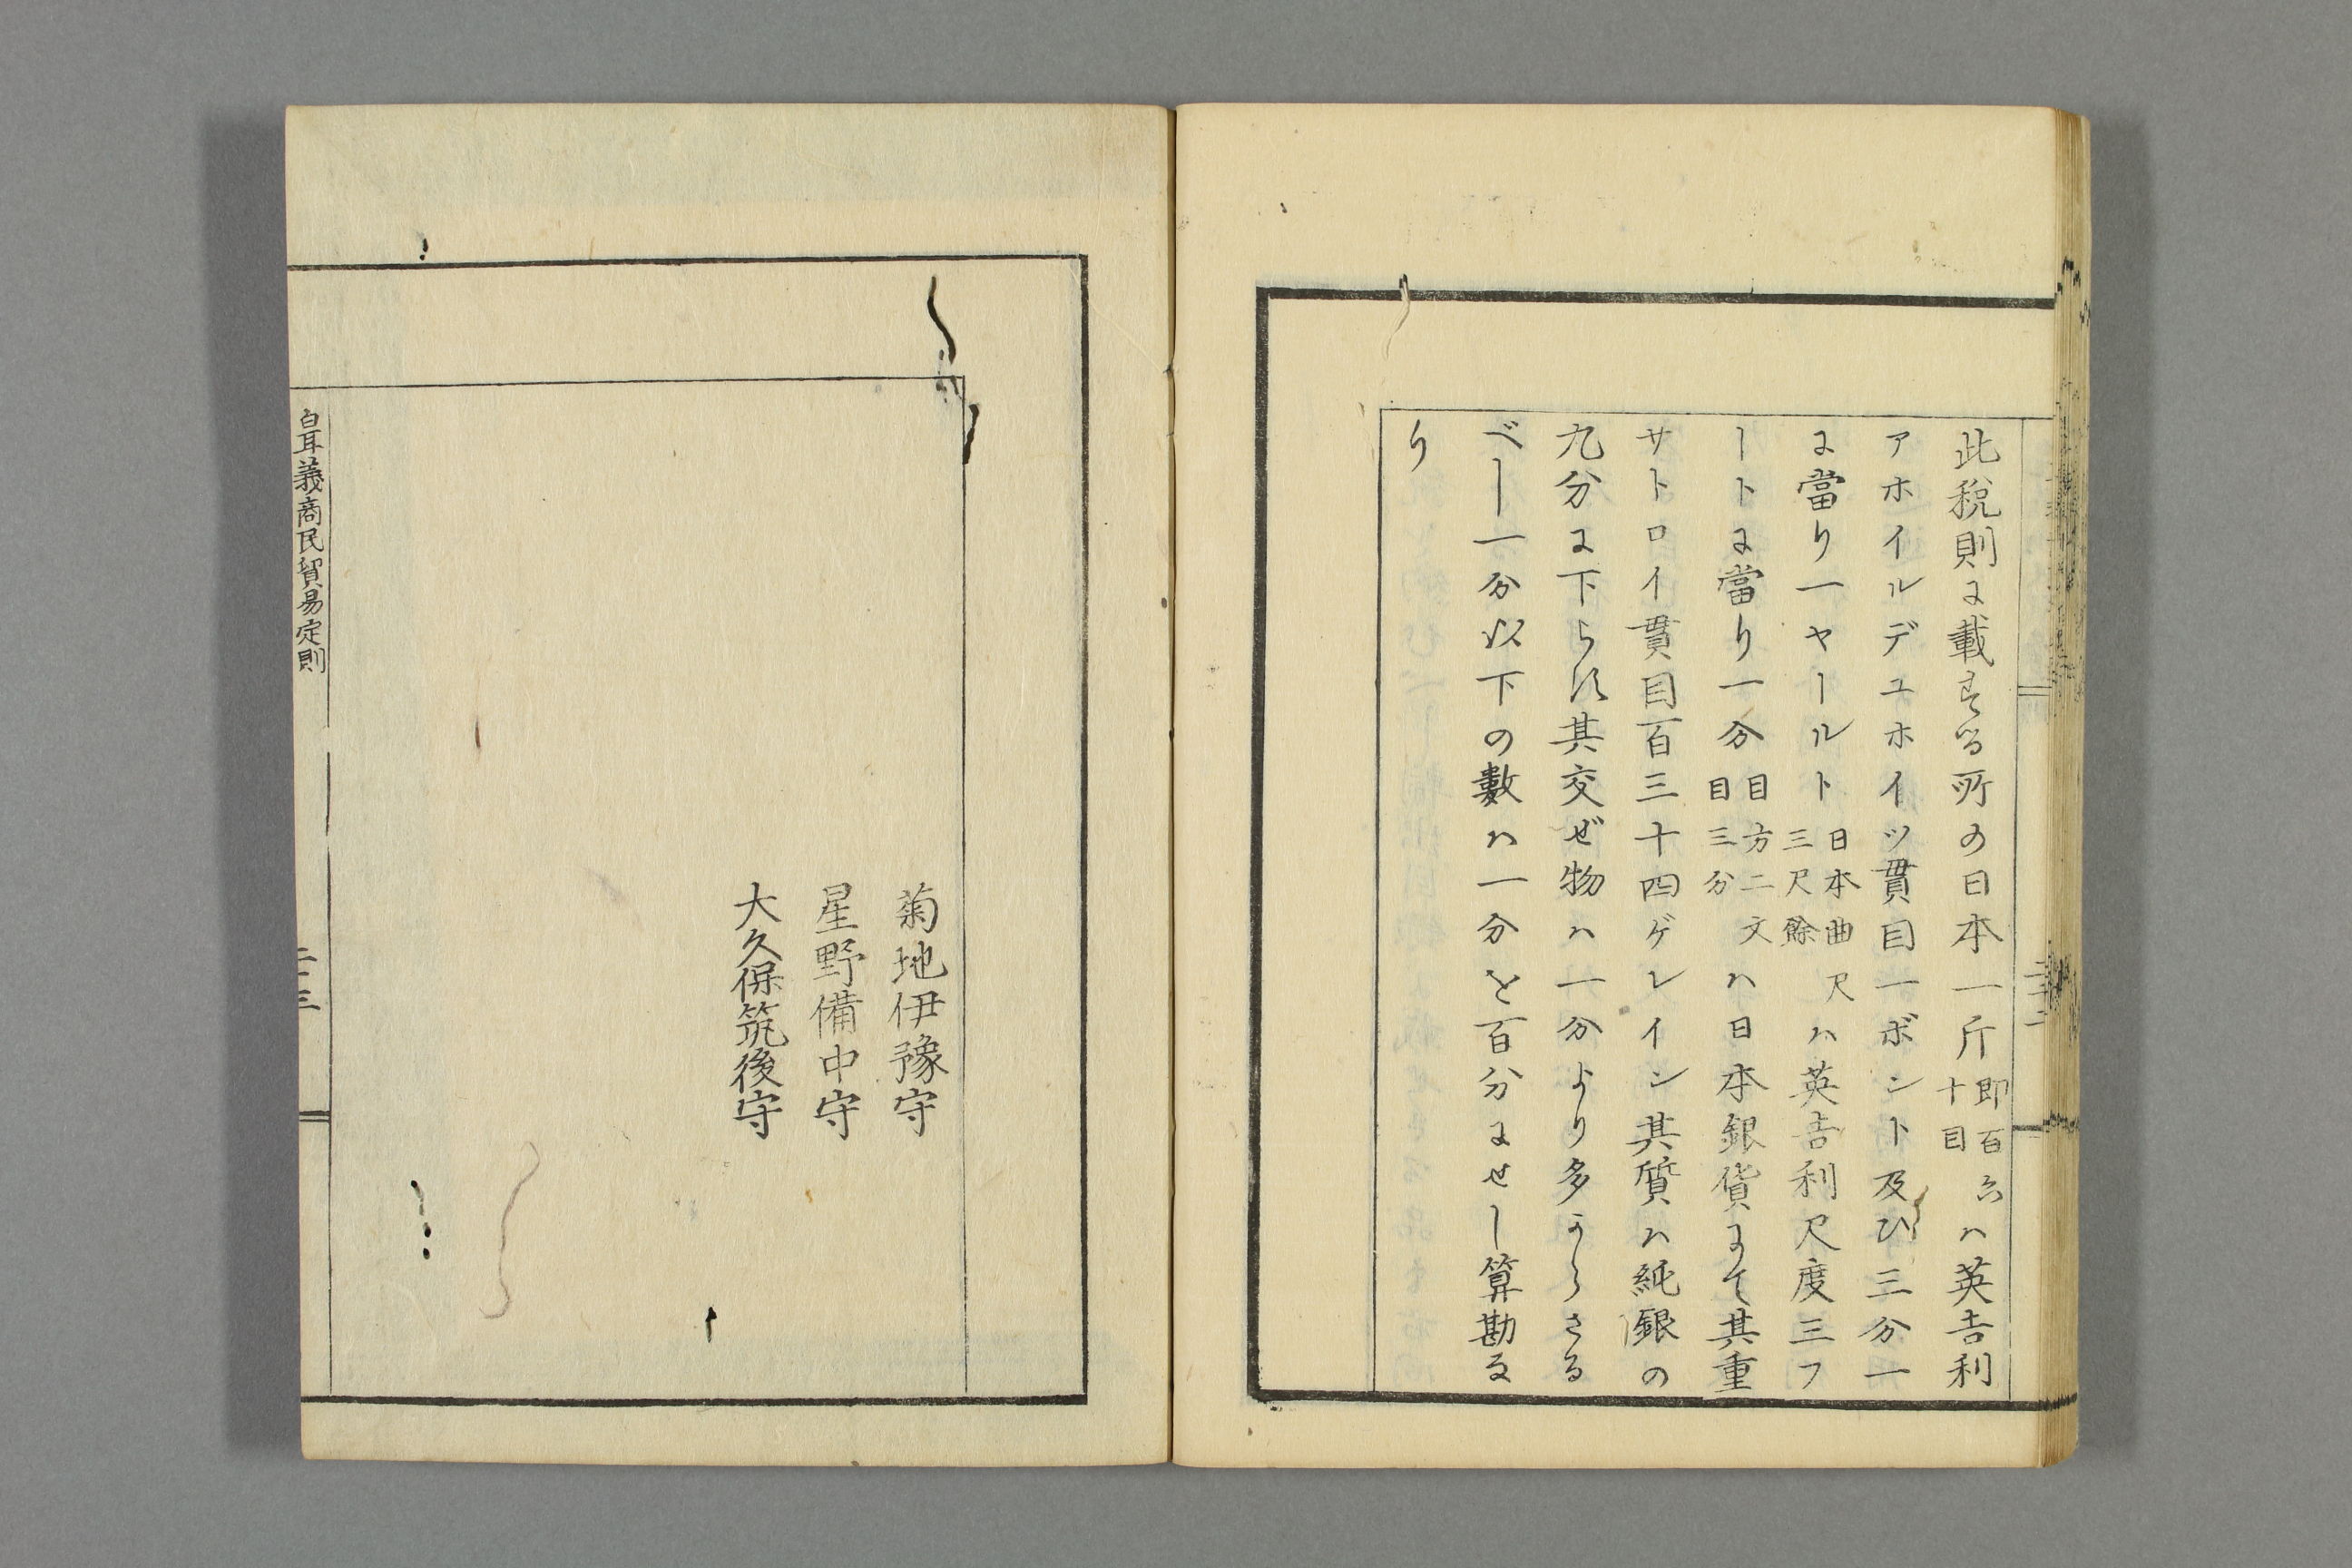 此税則に載する所の日本一斤即百六十目ハ英吉利
アホイルデユホイツ貫目一ボンド及ひ三分一
に當り一ヤールト日本曲尺三尺餘ハ英吉利尺度三フ
ートに當り一分目方二文目三分ハ日本銀貨にて其重
サトロイ貫目百三十四ゲレイン其質ハ純銀の
九分に下らす其交ぜ物ハ一分より多からさる
べし一分以下の數ハ一分を百分にせし算勘な
り
菊地伊豫守
星野備中守
大久保筑後守
白耳義商民貿易定則
二十三